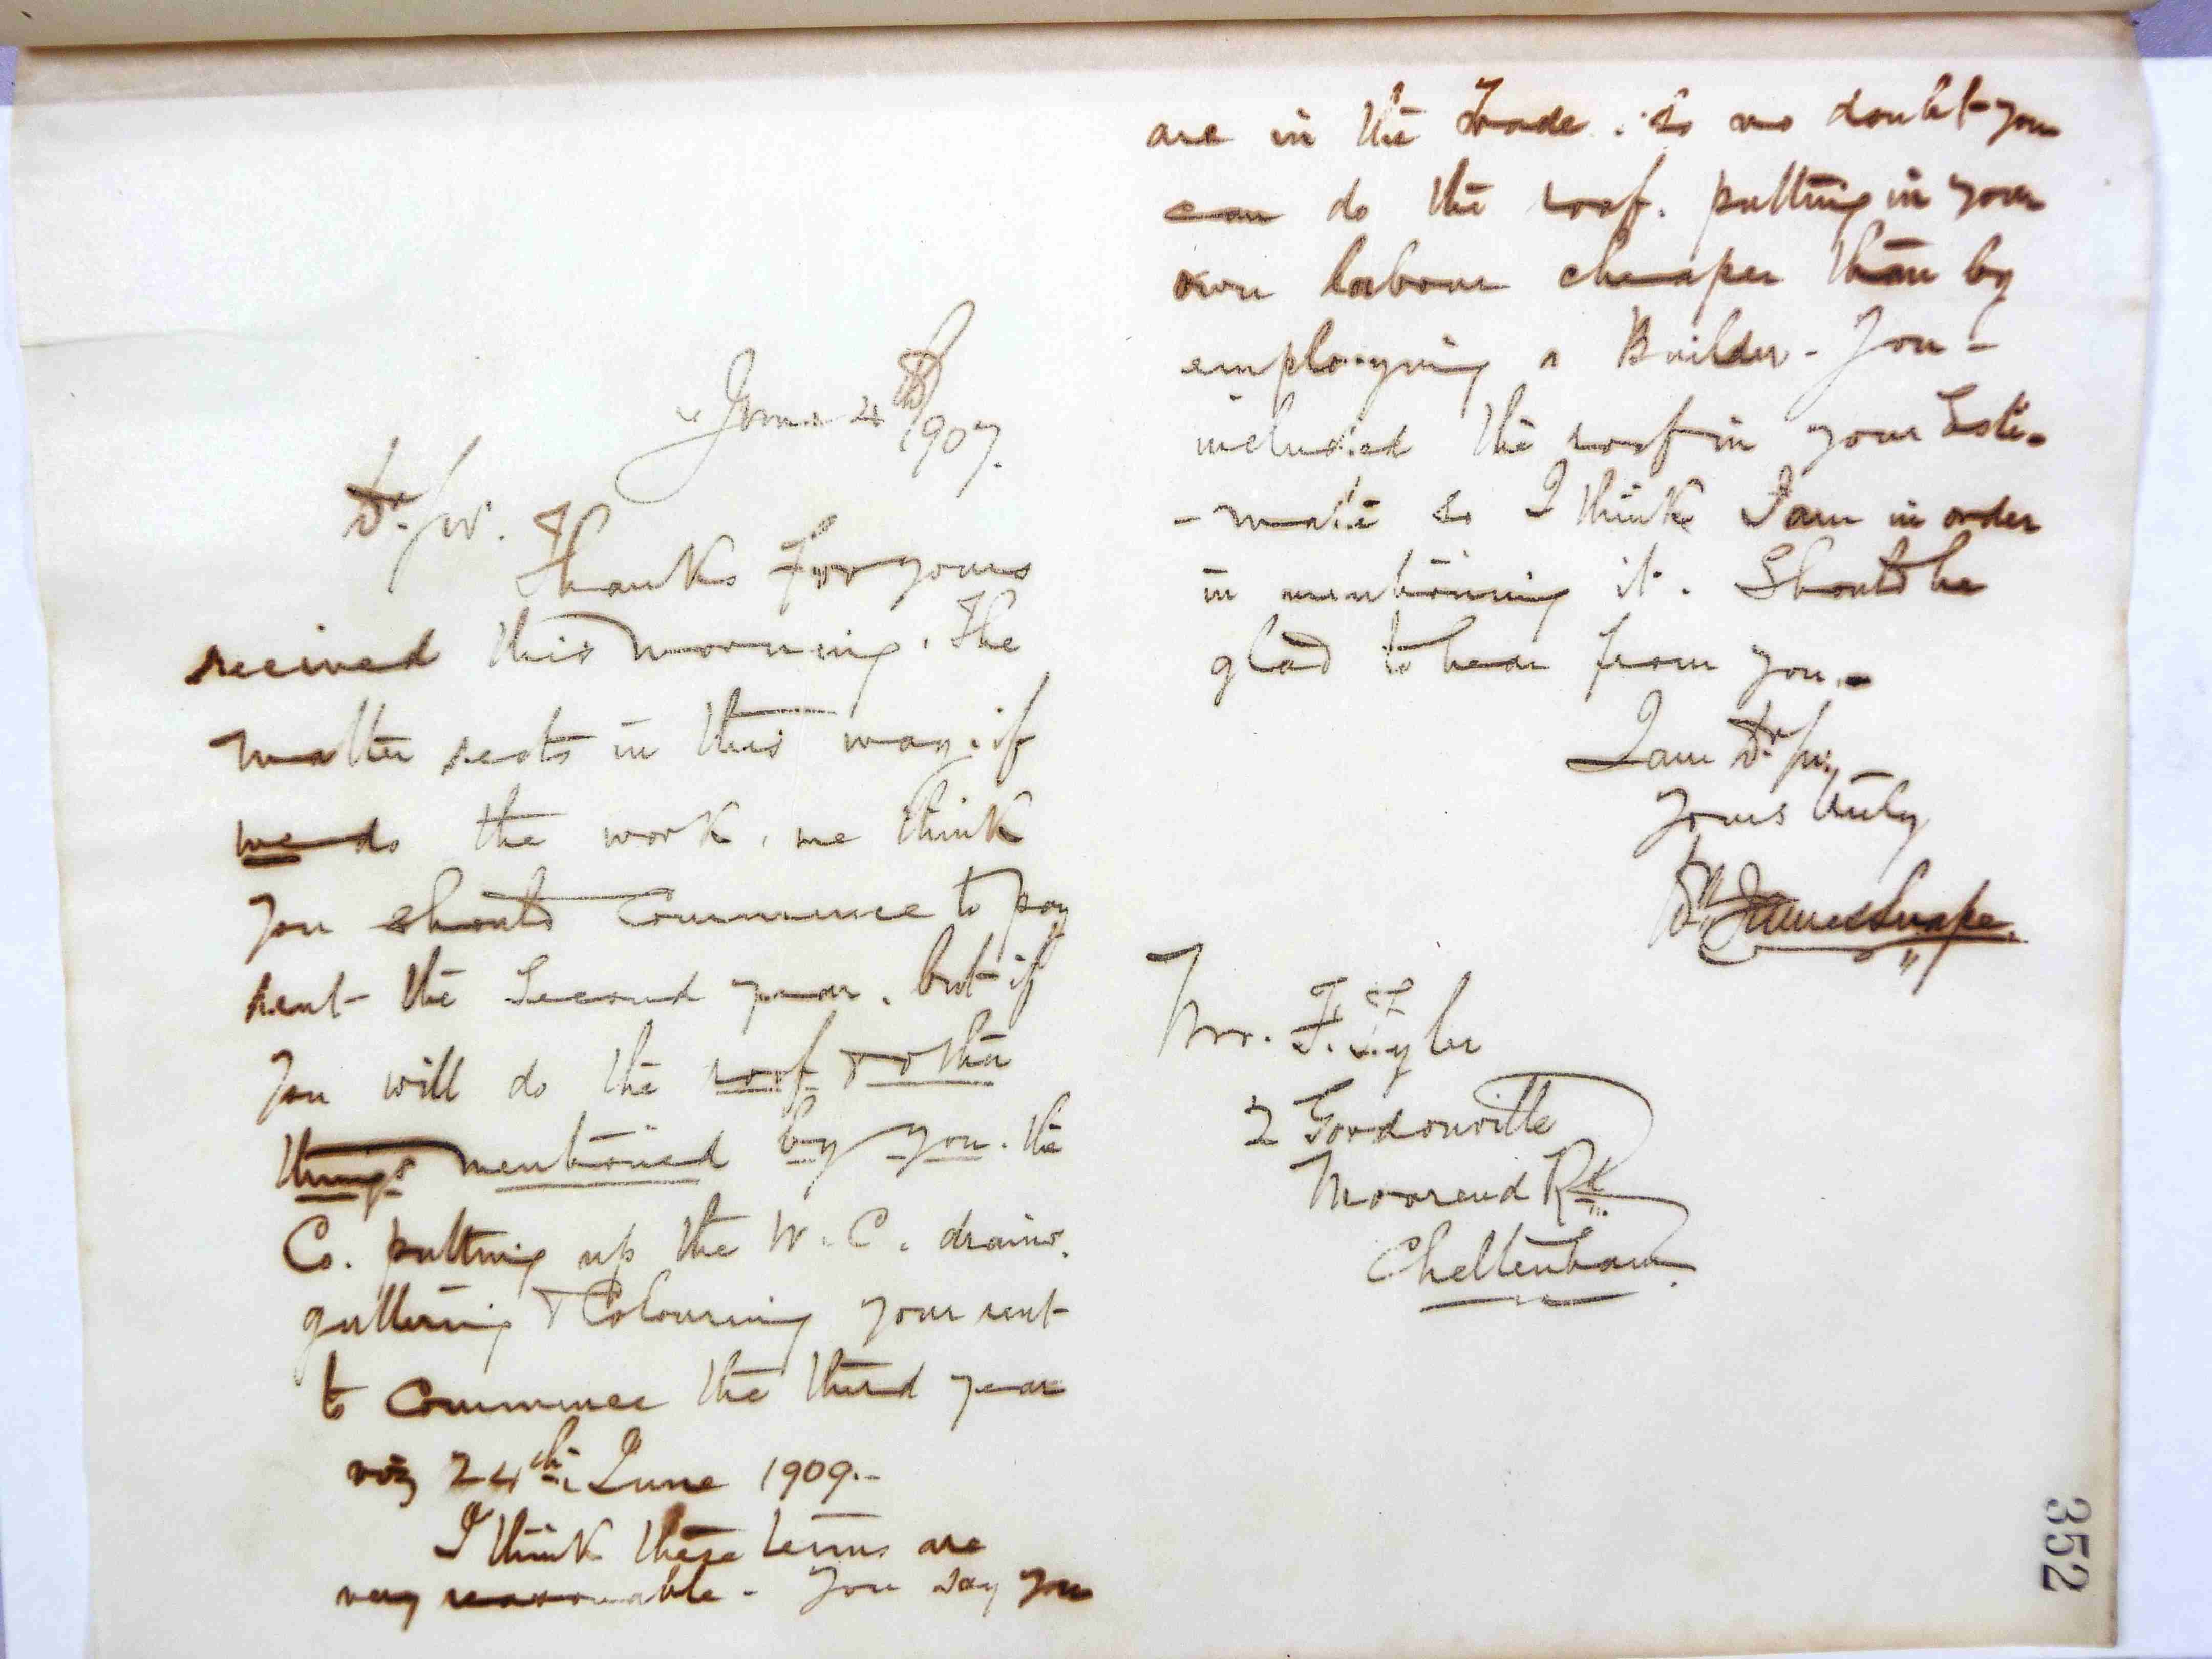 June 4th 1907.
Dr. Sir.
Thanks for yours
received this morning. The
matter rests in this way. if
we do the work, we think
you should commence to pay
rent the second year. but if
you will do the roof & other
things mentioned by you. the
Co. putting up the W.C. drains.
guttering & Colouring your rent
to commence the third year
viz 24th June 1909.-
I think these terms are
very reasonable - You say you
are in the Trade. So no doubt you
can do the roof. putting in your
own labour cheaper than by
employing a Builder - You -
included the roof in your Esti-
-mate so I think I am in order
in mentioning it. Should be
glad to hear from you.-
I am Dr Sir,
Yours truly
James Snape.
Mr. F. Tyler
2 Gordonville
Moorend Rd
Cheltenham.
352